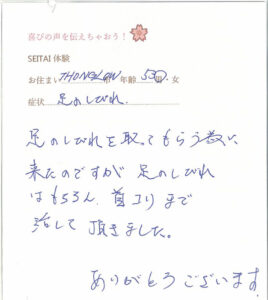 喜びの声を伝えちゃおう！
SEITAI 体験
お住まい THONGLOR 市 年齢 53 男・女
症状 足のしびれ.
足のしびれを取ってもらう為に
来たのですが 足のしびれ
はもちろん、首コリまで
治して頂きました。
ありがとうございます